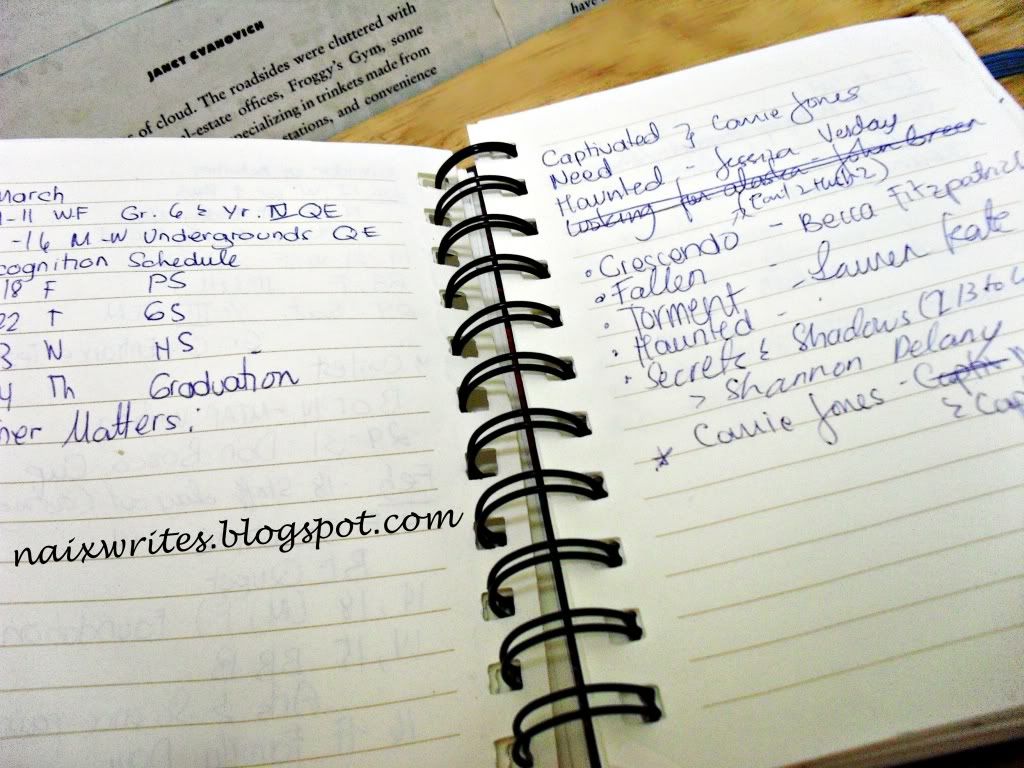 JANET EVANOVICH
of cloud. The roadsides were cluttered with
al-estate offices, Froggy's Gym, some
specializing in trinkets made from
stations, and convenience
have
March
-11 WF Gr. 6 & Yr. IV QE
-16 M-W Undergrounds QE
cognition Schedule
18 F PS
22 T GS
3 W HS
4 Th Graduation
her Matters:
naixwrites.blogspot.com
Captivated & Carrie Jones
Need
Haunted - Jessica Verday
Looking for Alaska - John Green
• Crescendo - Becca Fitzpatrick
• Fallen
• Torment - Lauren Kate
• Haunted -
• Secrets & Shadows (
> Shannon Delany
* Carrie Jones - Captiv
& Cap